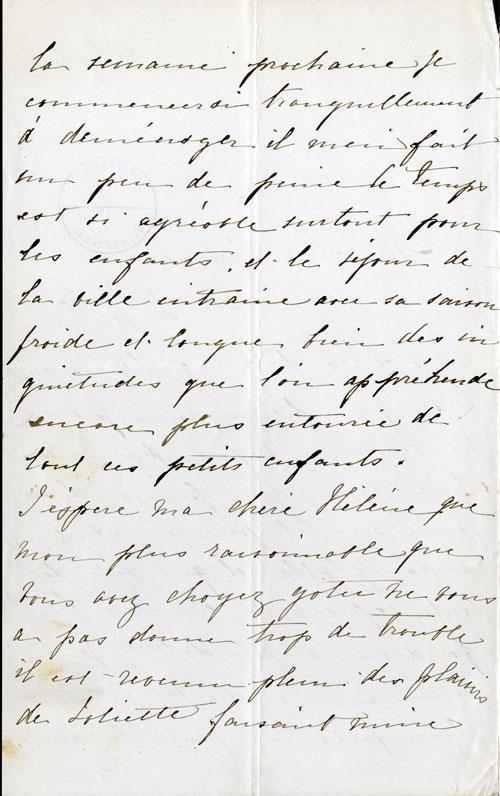 la semaine prochaine Je
commencerai tranquillement
à déménager il m'en fait
un peu de peine le temps
est si agréable surtout pour
les enfants, et le séjour de
la ville entraine avec sa saison
froide et longue bien des in
quietudes que l'on appréhende
encore plus entourée de
tout ces petits enfants.
J'éspère ma chère Hélène que
mon plus raisonnable que
vous avez choyez gater ne vous
a pas donne trop de trouble
il est revenu plein des plaisirs
de Joliette faisant mine